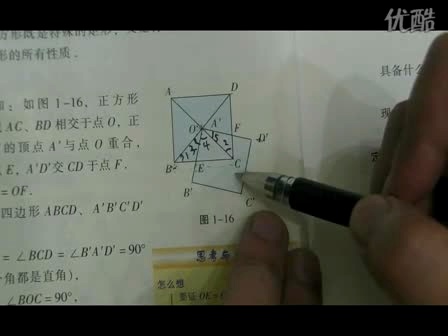 优酷
方形既是特殊的矩形，又是
形的所有性质．
如图1-16，正方形
AC、BD相交于点O，正
的顶点A'与点O重合，
E，A'D'交CD于点F．
=OF．
四边形ABCD、A'B'C'D'
=∠BCD=∠B'A'D'=90°
角都是直角），
∠BOC=90°，
A
D
O
A'
F
D'
B
E
C
B'
C'
1
2
3
4
5
图1-16
具备什
现
定
思考与
怎么想
要证OE=